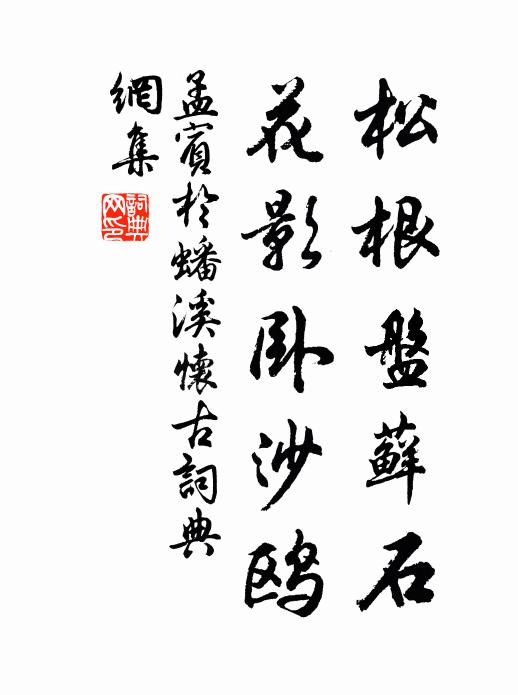 松根盤蘚石
花影卧沙鸥
孟賓於蟠溪懷古詞典
網集
詞典網印